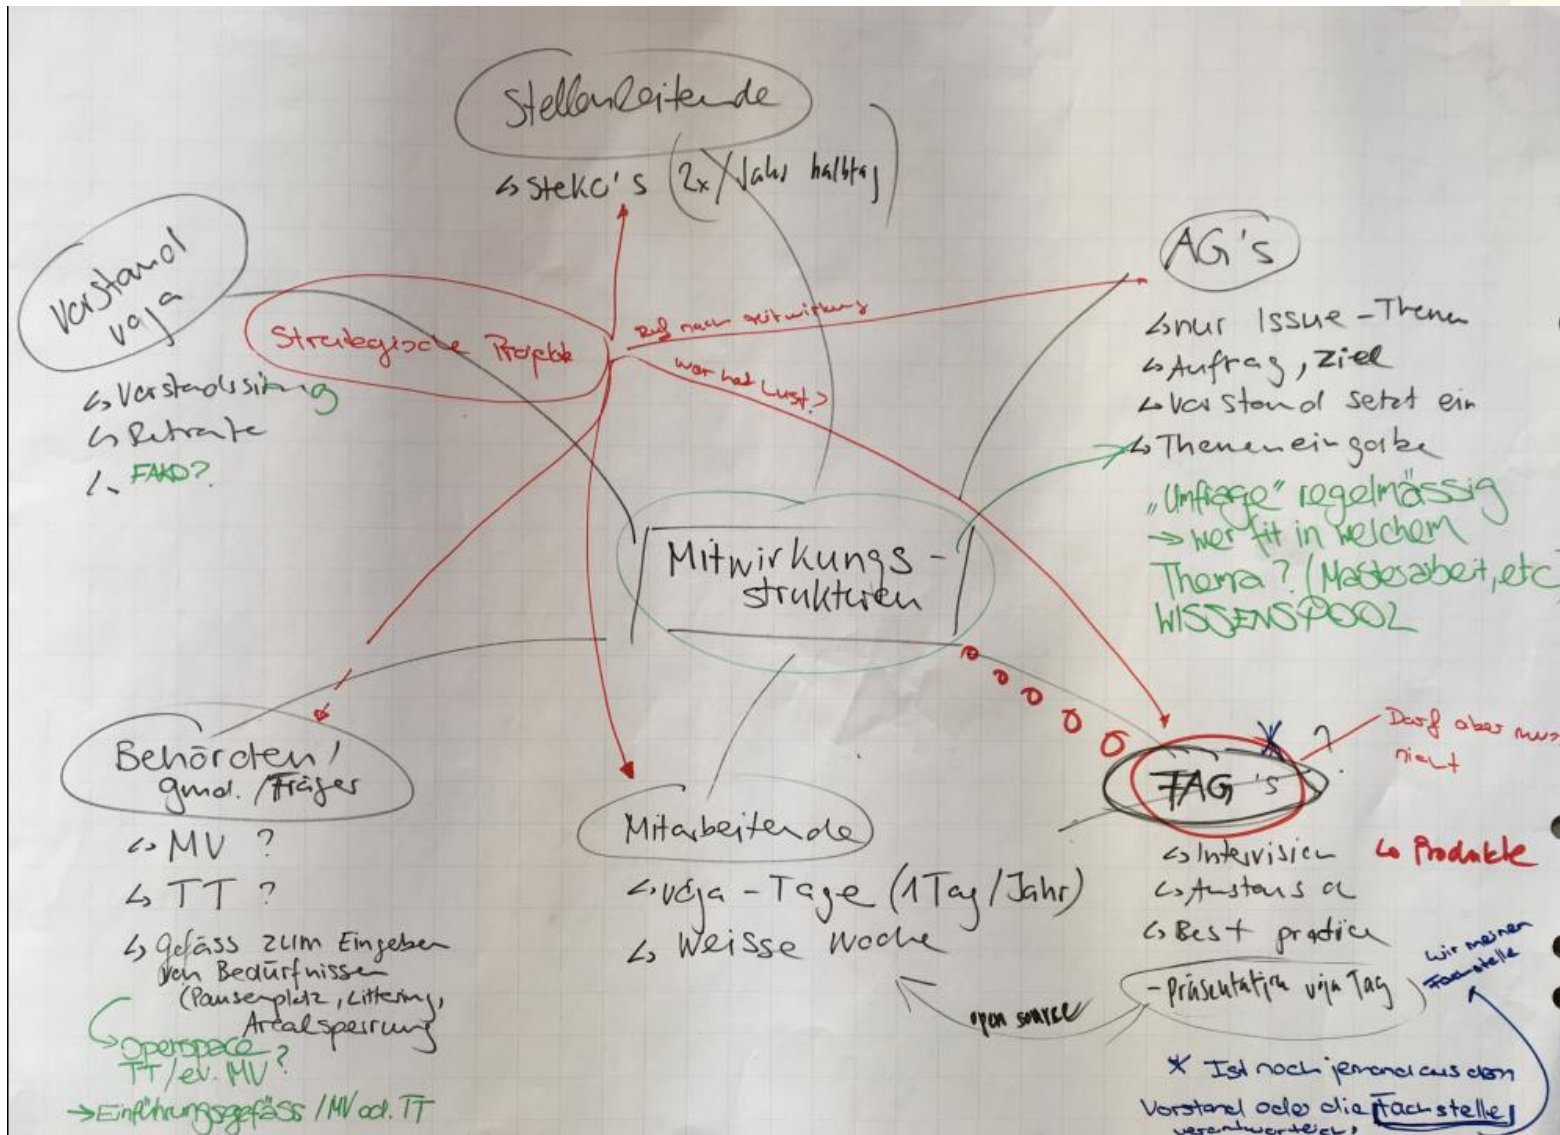 Stellenleitende
↳ Steko's (2x/Jahr halbtag)
Vorstand
voja
↳ Vorstandssitzung
↳ Retraite
↳ FAKO?
Strategische Projekte
Ruf nach Mitwirkung
wer hat Lust?
AG's
↳ nur Issue-Themen
↳ Auftrag, Ziel
↳ Vorstand setzt ein
↳ Themeneingabe
"Umfrage" regelmässig
→ wer fit in welchem
Thema? (Masterarbeit, etc
WISSENSPOOL
Mitwirkungs-
strukturen
Behörden/
gmd./Träger
↳ MV ?
↳ TT ?
↳ Gefäss zum Eingeben
von Bedürfnissen
(Pausenplatz, Littering,
Arealsperrung
Openspace
TT/ev. MV?
→ Einführungsgefäss/MV od. TT
Mitarbeitende
↳ voja-Tage (1 Tag/Jahr)
↳ Weisse Woche
FAG's
* ?
Darf aber muss
nicht
↳ Intervision
↳ Produkte
↳ Austausch
↳ Best practice
- Präsentation voja Tag
open source
wir meinen
Fachstelle
* Ist noch jemand aus dem
Vorstand oder die Fachstelle
verantwortlich?